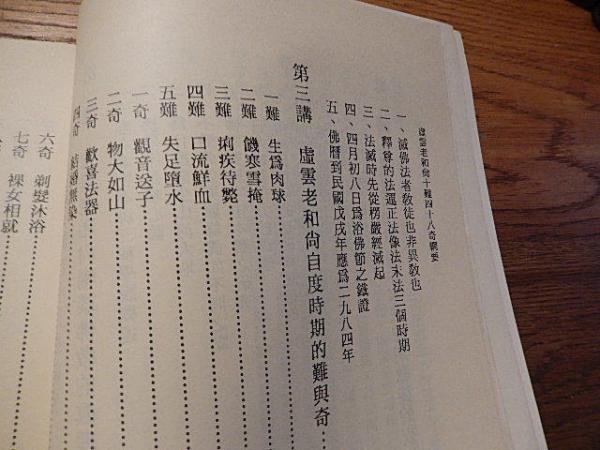 虛雲老和尙十難四十八奇觀要
一、滅佛法者敎徒也非異敎也
二、釋尊的法運正法像法末法三個時期
三、法滅時先從楞嚴經滅起
四、四月初八日爲浴佛節之鐵證
五、佛曆到民國戊戌年應爲二九八四年
第三講 虛雲老和尙自度時期的難與奇
一難 生爲肉球
二難 饑寒雪掩
三難 痢疾待斃
四難 口流鮮血
五難 失足墮水
一奇 觀音送子
二奇 物大如山
三奇 歡喜法器
四奇 結婚無染
六奇 剃髮沐浴
七奇 裸女相就